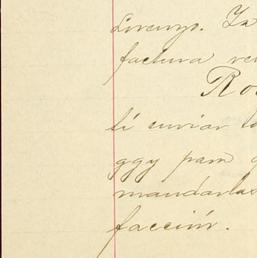 Lorenzo. La
factura re
Ro
ti enviar la
ggy para
mandarlas
facción.